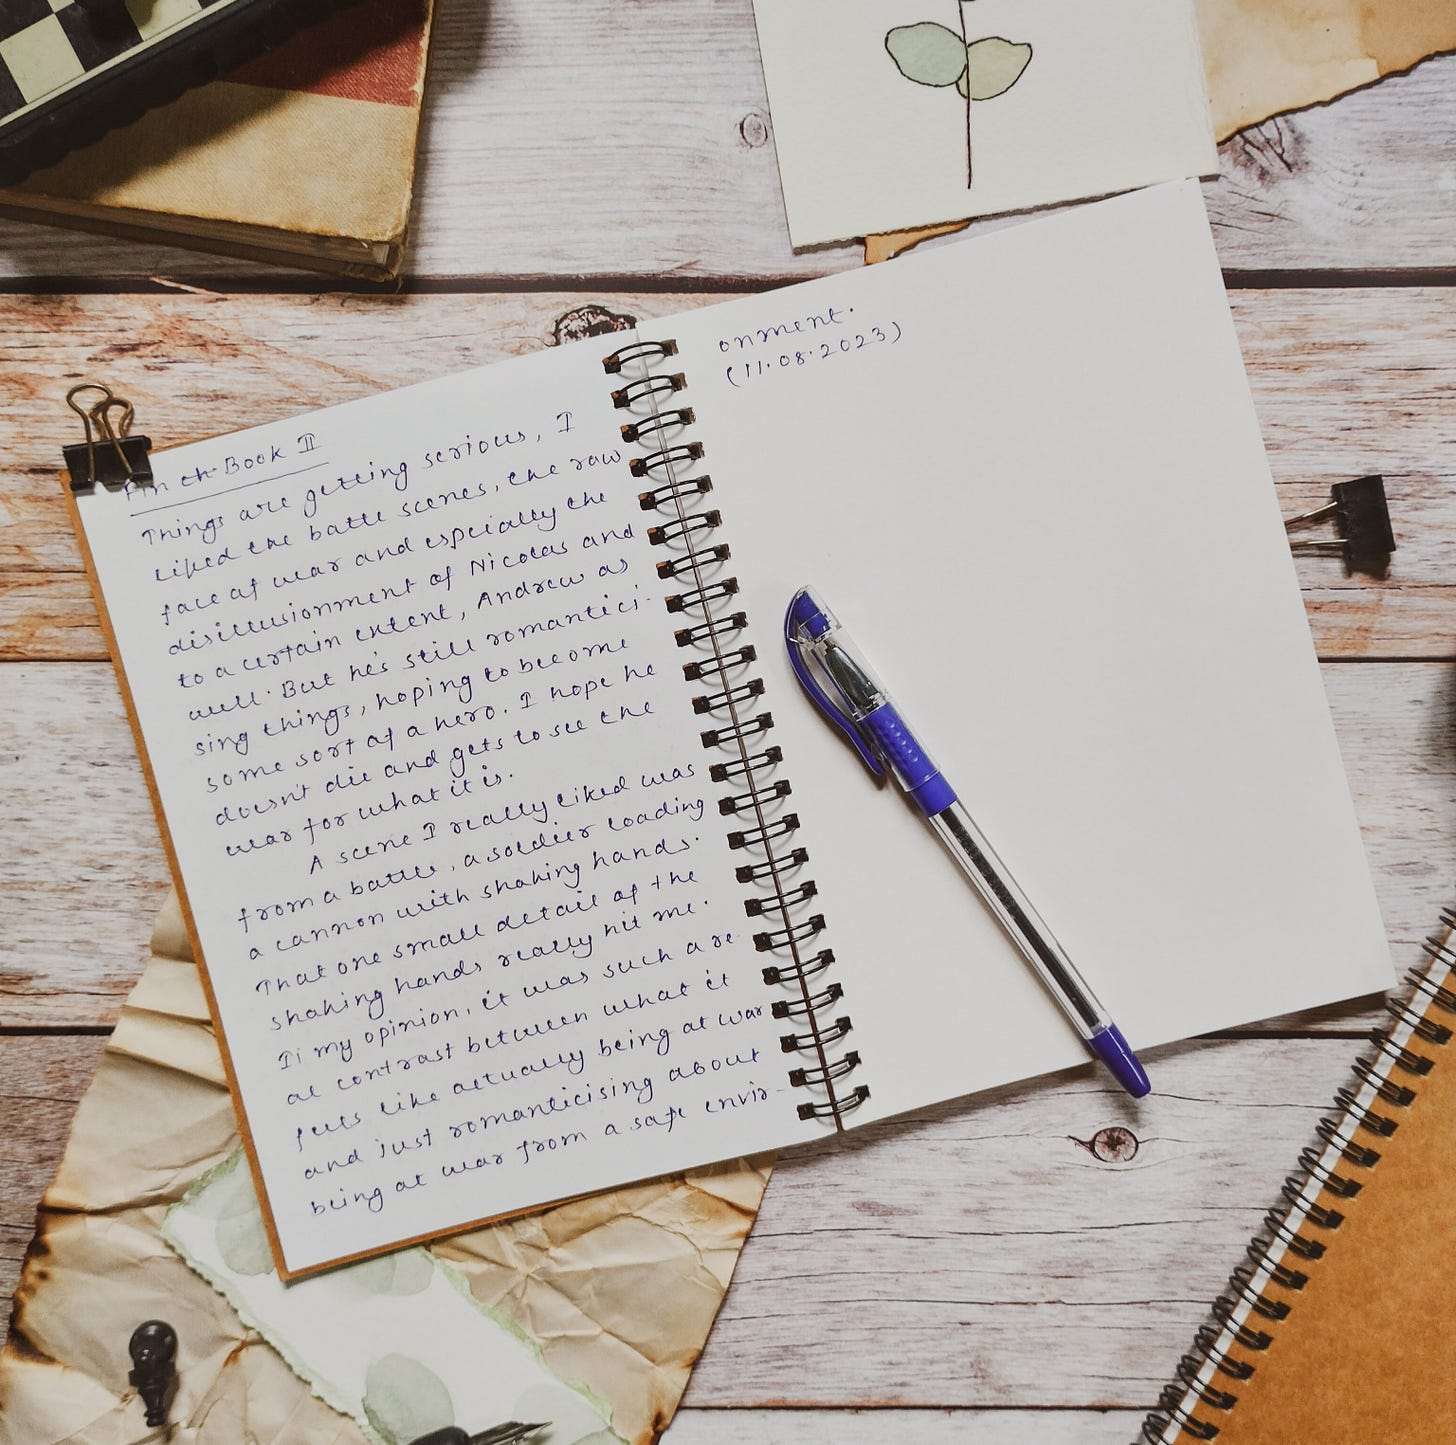 Book II
Things are getting serious, I
liked the battle scenes, the raw
face of war and espcially the
disillusionment of Nicolas and
to a certain extent, Andrew as
well. But he's still romantici-
sing things, hoping to become
some sort of a hero. I hope he
doesn't die and gets to see the
war for what it is.
A scene I really liked was
from a battle, a soldier loading
a cannon with shaking hands.
That one small detail of the
shaking hands really hit me.
In my opinion, it was such a re
al contrast between what it
feels like actually being at war
and just romanticising about
being at war from a safe envir-
onment.
(11.08.2023)